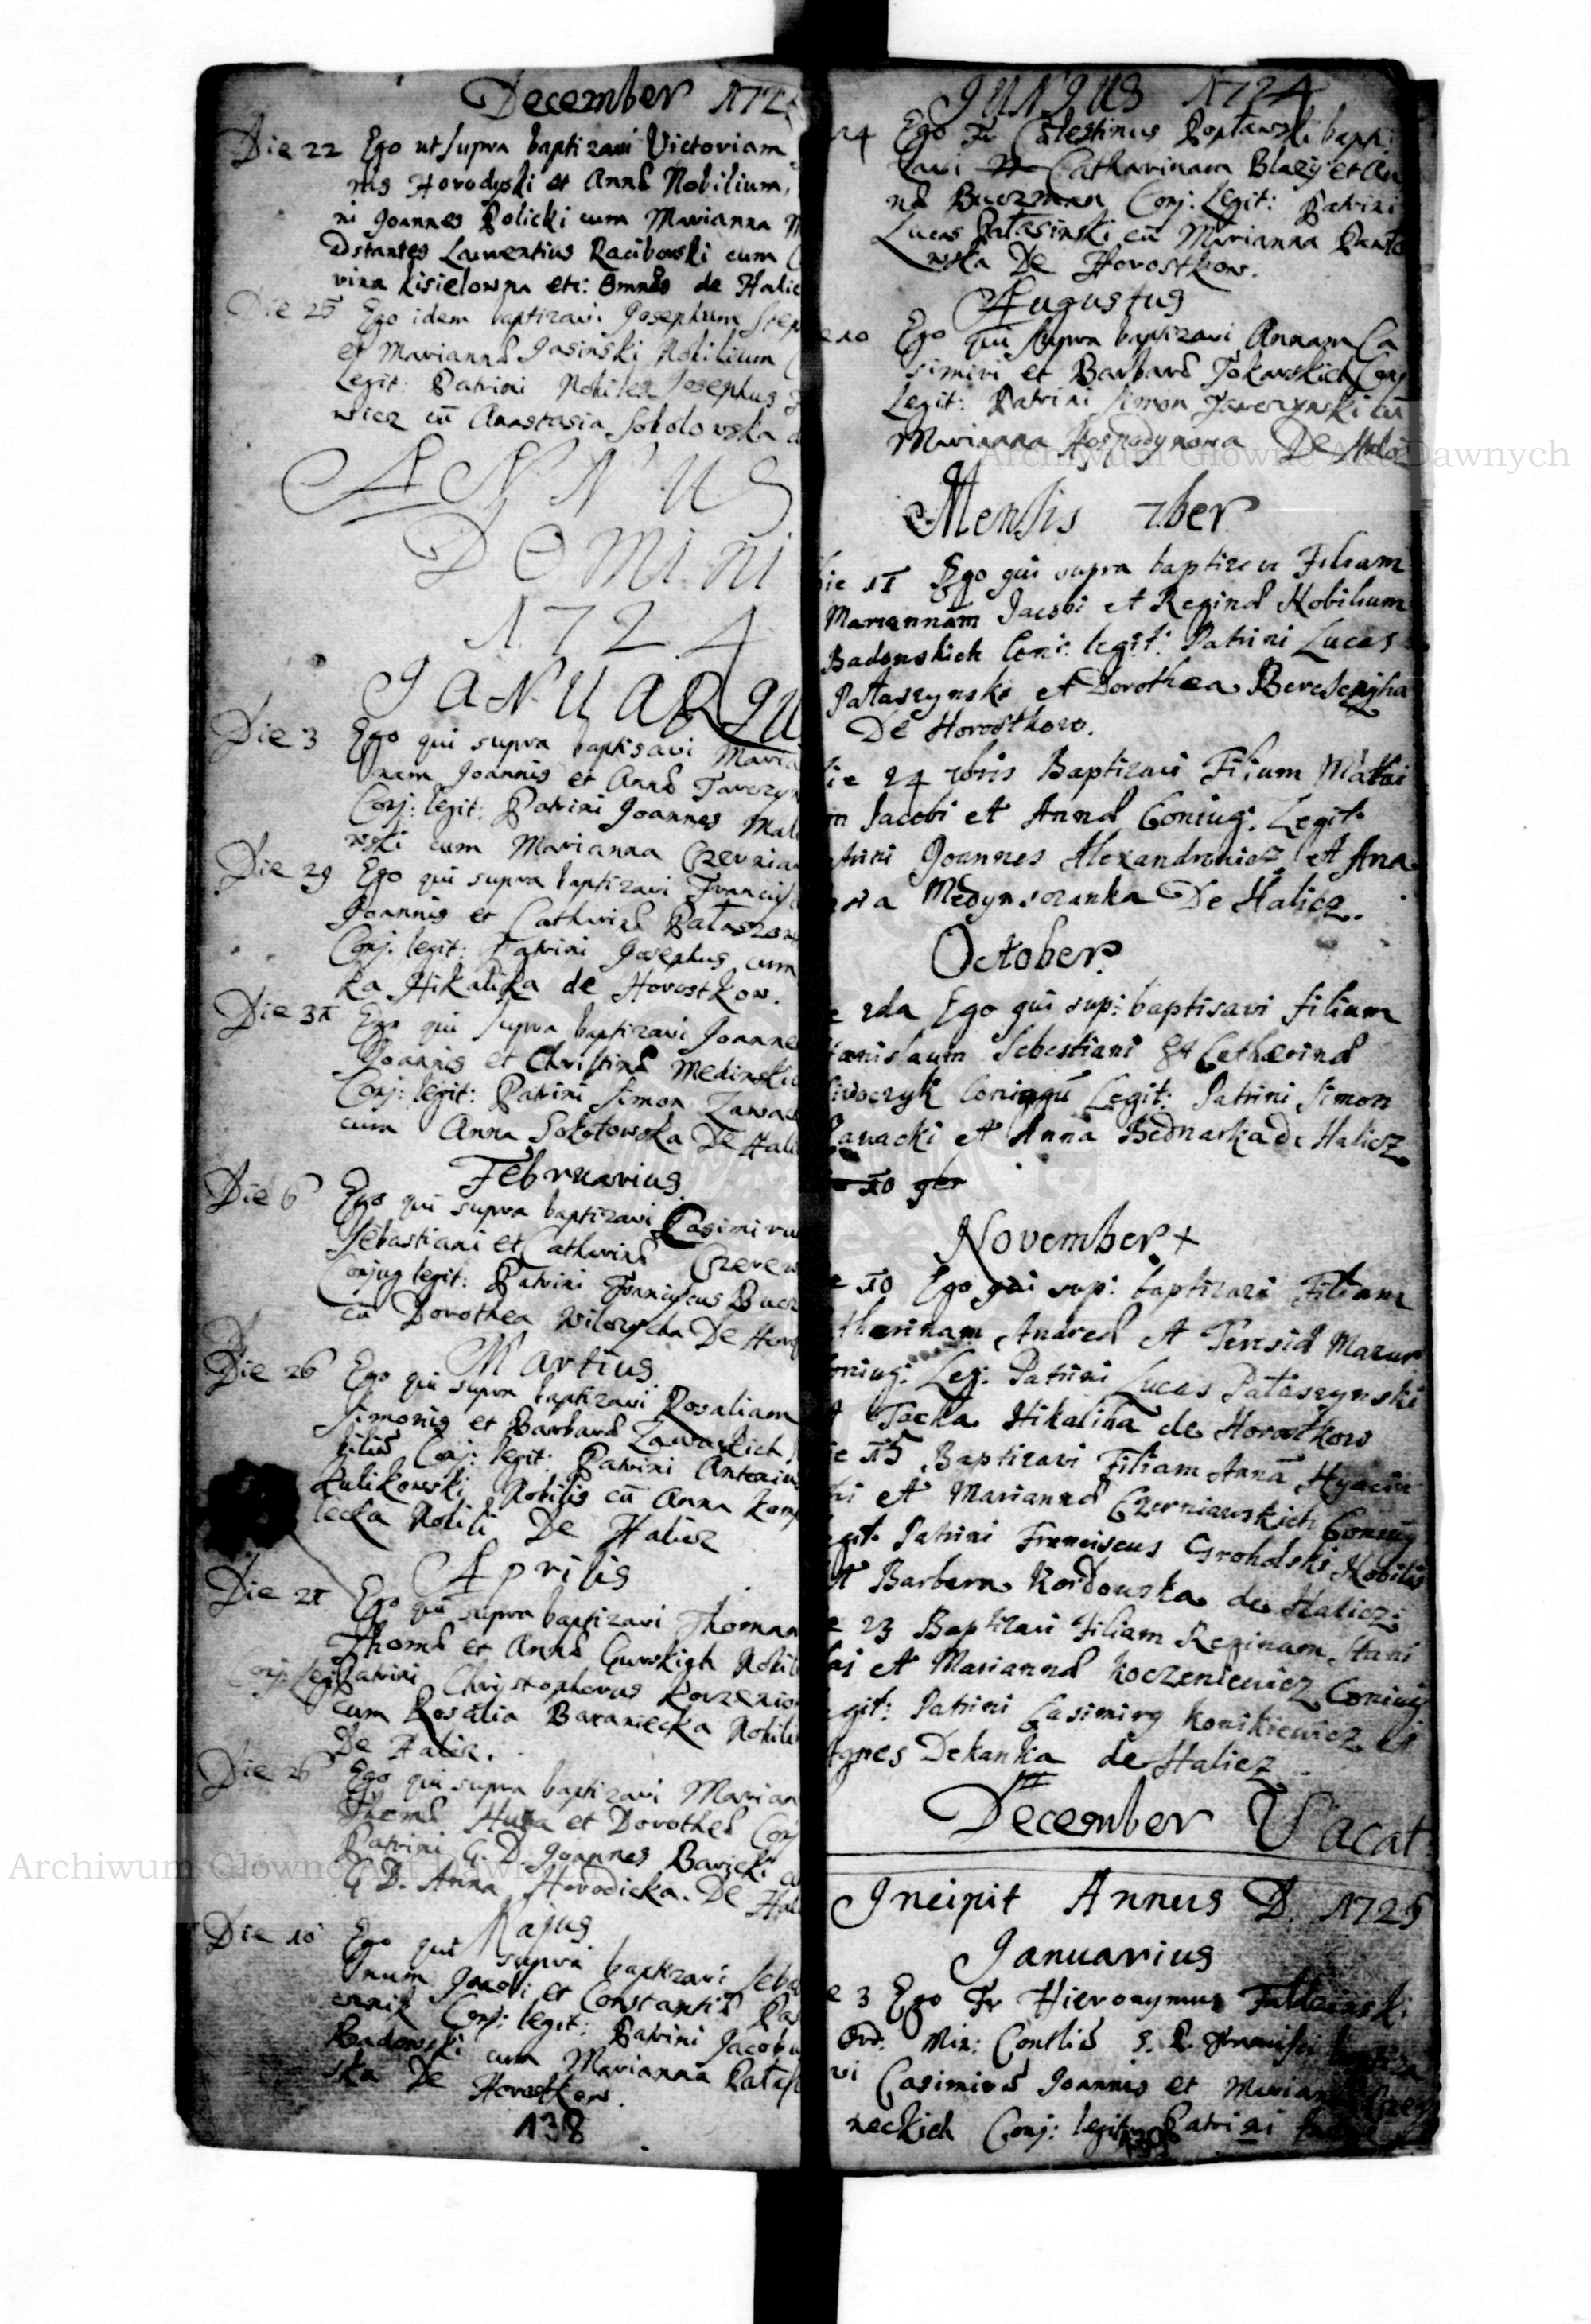 December 172
Die 22 Ego ut supra baptizavi Victoriam
nis Horodyski et Annæ Nobilium,
ni Joannes Rolicki cum Marianna M
adstantes Laurentius Raciborski cum C
rina Kisielowna etc: Omnes de Halic
Die 25 Ego idem baptizavi Josephum Step
et Mariannæ Jasinski Nobilium C
Legit: Patrini Nobiles Josephus
wicz cū Anastasia Sokolowska d
ANNUS
DOMINI
1724
JANUARIU
Die 3 Ego qui supra baptisavi Maria
nam Joannis et Annæ Tarczyn
Conj: legit: Patrini Joannes Mali
wski cum Marianna Czernia
Die 29 Ego qui supra baptizavi Francisc
Joannis et Catharinæ Pałaszow
Conj: legit: Patrini Josephus cum
ka Hikalicka de Horostkow.
Die 31 Ego qui supra baptizavi Joanne
Joannis et Christinæ Medinskic
Conj: legit: Patrini Simon Zawac
cum Anna Sokołowska De Hali
Februarius
Die 6 Ego qui supra baptizavi Casimiru
Sebastiani et Catharinæ Czerew
Conjug legit: Patrini Franciscus Bucz
cū Dorothea Wilczycha De Horos
Martius
Die 26 Ego qui supra baptizavi Rosaliam
Simonis et Barbaræ Zawackich
biliū Conj: legit: Patrini Antonius
Kulikowski Nobilis cū Anna Komp
lecka Nobili De Halicz
Aprilis
Die 21 Ego qui supra baptizavi Thomam
Thomæ et Annæ Gurskich Nobili
Conj: Leg: Patrini Christophorus Korzenio
cum Rosalia Baraniecka Nobili
De Halicz.
Die 26 Ego qui supra baptizavi Marian
Thomæ Huza et Dorotheæ Conj
Patrini G. D. Joannes Barycki cū
G D. Anna Horodicka. De Hali
Majus
Die 10 Ego qui supra baptizavi Seba
num Jacobi et Constantiæ Pas
Conj: legit: Patrini Jacobu
Badowski cum Marianna Pałas
ska De Horostkow.
138
JUNIUS 1724
24 Ego Fr Cælestinus Popławski bapti
zavi Catharinam Blazy et An
næ Buczman Conj: Legit: Patrini
Lucas Pałasinski cū Marianna Panto
wska De Horostkow.
Augustus
e 10 Ego qui supra baptizavi Annam Ca
simiri et Barbaræ Tokarskich Conj
Legit: Patrini Simon Tarczynski cū
Marianna Hospodynowa De Halicz
Mensis 7ber
Die 11 Ego qui supra baptizavi Filiam
Mariannam Jacobi et Reginæ Nobilium
Badowskich Coni: legit: Patrini Lucas
Pałaszynski et Dorothea Beresczycha
De Horostkow.
ie 24 7bris Baptizavi Filium Mathæ
m Jacobi et Annæ Coniug: Legit:
atrini Joannes Alexandrowicz et Ana
sia Medynszczanka De Halicz.
October
e 2da Ego qui sup: baptisavi filium
tanislaum Sebestiani Et Catherinæ
Coniugū Legit: Patrini Simon
Zawacki et Anna Bednarka de Halicz
10 9br
November +
e 10 Ego qui sup: baptizavi Filiam
therinam Andreæ et Teresiæ Mazur
oniug: Leg: Patrini Lucas Pałaszynski
t Tacka Hikalicha de Horostkow
ie 15 Baptizavi Filiam Annā Hyacin
thi et Mariannæ Czerniawskich Coniug
egit. Patrini Franciscus Grohdski Nobilis
et Barbara Kordowska de Halicz:
e 23 Baptizavi Filiam Reginam Stani
lai et Mariannæ Koczeniewicz Coniug
egit: Patrini Casimirg Konikiewicz et
Agnes Dekanka de Halicz
December Vacat
Incipit Annus D. 1725
Januarius
e 3 Ego Fr Hieronymus Faldzinski
Ord: Min: Contliū S. P. Francisci baptiza
vi Casimirū Joannis et Mariannæ
neckich Conj: legit: Patrini
Archiwum Główne Akt Dawnych
Archiwum Główne Akt Dawnych